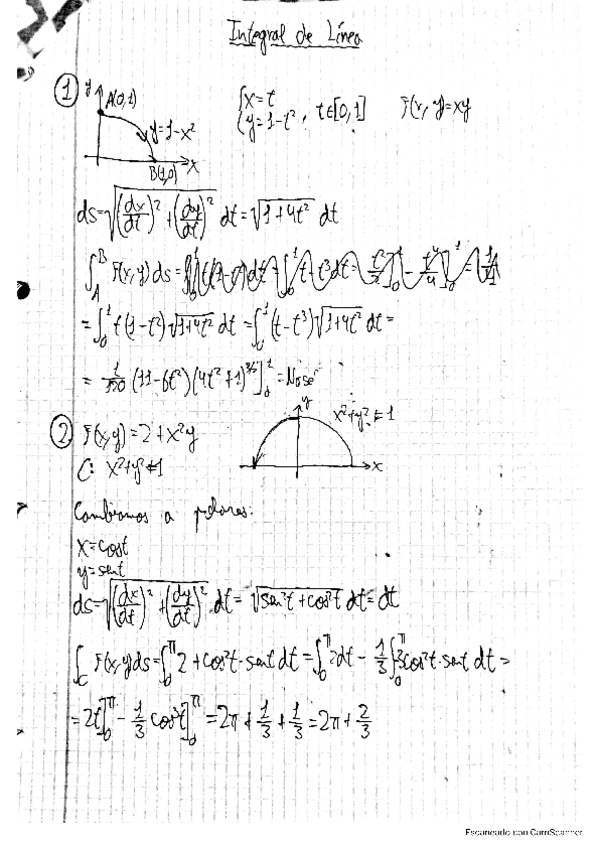 Integral de Línea
① y A(0,1) y=1-x² B(1,0) x
{x=t
{y=1-t², t∈[0,1] f(x,y)=xy
ds=√((dx/dt)²+(dy/dt)²) dt=√(1+4t²) dt
∫_A^B f(x,y) ds=
=∫₀¹ t(1-t²)√(1+4t²) dt=∫₀¹(t-t³)√(1+4t²) dt=
= 1/120 (11-6t²)(4t²+1)^(3/2)]₀¹ = No sé
② f(x,y)=2+x²y
C: x²+y²=1
y x²+y²=1 x
Cambiamos a polares:
x=cost
y=sent
ds=√((dx/dt)²+(dy/dt)²) dt=√(sen²t+cos²t) dt=dt
∫_C f(x,y)ds=∫₀^π 2+cos²t·sent dt=∫₀^π 2dt - 1/3 ∫₀^π 3cos²t·sent dt=
=2t]₀^π - 1/3 cos³t]₀^π =2π+1/3+1/3=2π+2/3
Escaneado con CamScanner